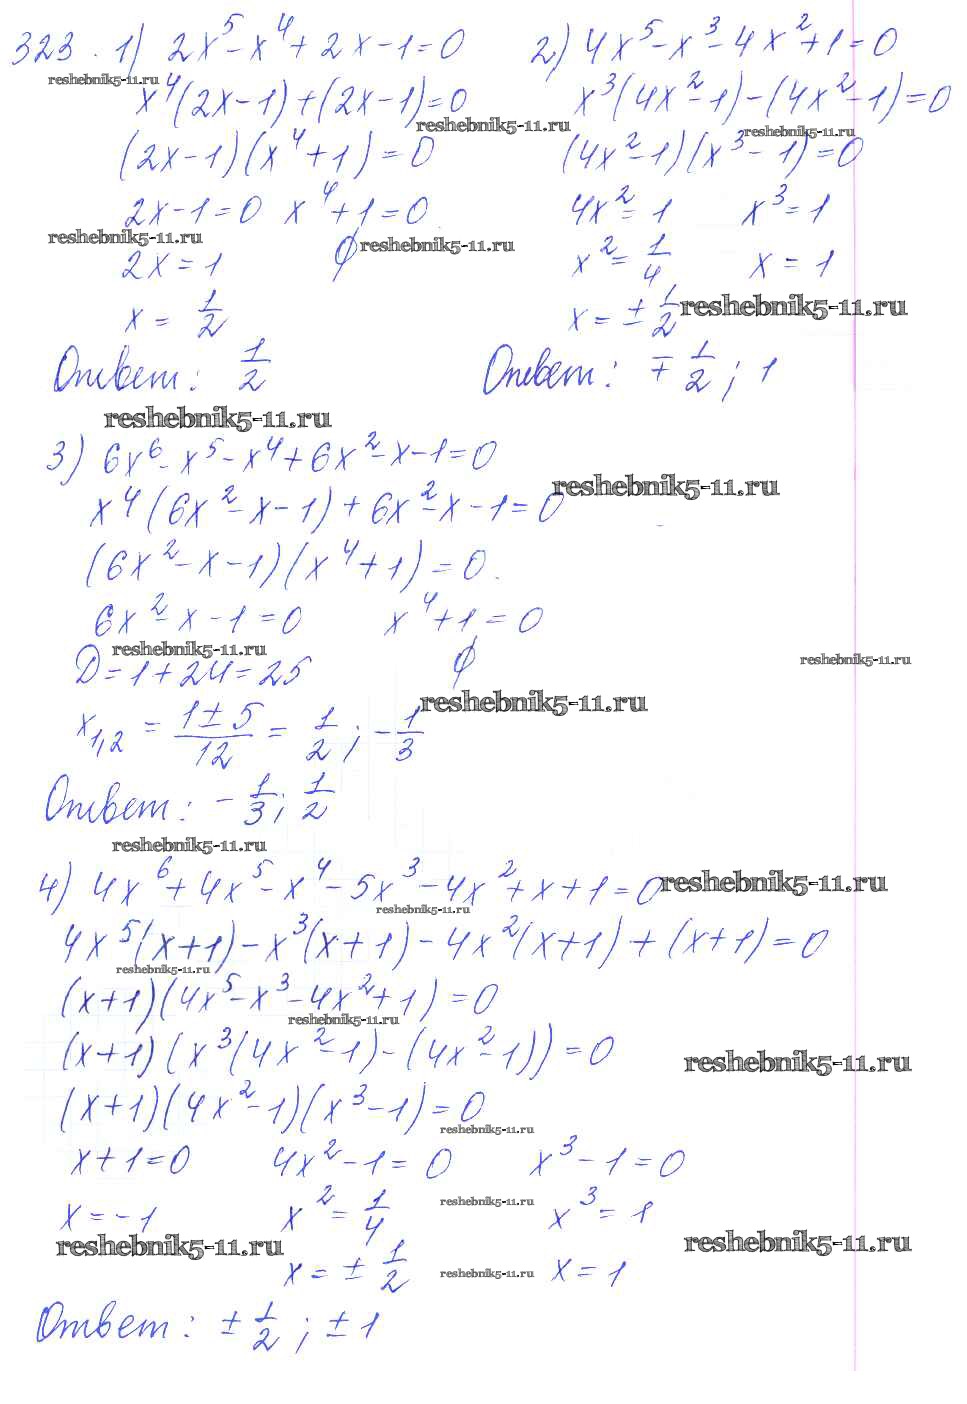 323. 1) 2x⁵-x⁴+2x-1=0
reshebnik5-11.ru
x⁴(2x-1)+(2x-1)=0
reshebnik5-11.ru
(2x-1)(x⁴+1)=0
2x-1=0 x⁴+1=0
reshebnik5-11.ru
2x=1 ∅ reshebnik5-11.ru
x = 1/2
Ответ: 1/2
2) 4x⁵-x³-4x²+1=0
x³(4x²-1)-(4x²-1)=0
reshebnik5-11.ru
(4x²-1)(x³-1)=0
4x²=1 x³=1
x²=1/4 x=1
x=±1/2 reshebnik5-11.ru
Ответ: ∓1/2; 1
reshebnik5-11.ru
3) 6x⁶-x⁵-x⁴+6x²-x-1=0
reshebnik5-11.ru
x⁴(6x²-x-1)+6x²-x-1=0
(6x²-x-1)(x⁴+1)=0.
6x²-x-1=0 x⁴+1=0
reshebnik5-11.ru
D=1+24=25 ∅
reshebnik5-11.ru
reshebnik5-11.ru
x₁,₂ = (1±5)/12 = 1/2; -1/3
Ответ: -1/3; 1/2
reshebnik5-11.ru
4) 4x⁶+4x⁵-x⁴-5x³-4x²+x+1=0
reshebnik5-11.ru
reshebnik5-11.ru
4x⁵(x+1)-x³(x+1)-4x²(x+1)+(x+1)=0
reshebnik5-11.ru
(x+1)(4x⁵-x³-4x²+1)=0
reshebnik5-11.ru
(x+1)(x³(4x²-1)-(4x²-1))=0
reshebnik5-11.ru
(x+1)(4x²-1)(x³-1)=0
reshebnik5-11.ru
x+1=0 4x²-1=0 x³-1=0
reshebnik5-11.ru
x=-1 x²=1/4 x³=1
reshebnik5-11.ru
reshebnik5-11.ru
x=±1/2 reshebnik5-11.ru x=1
Ответ: ±1/2; ±1